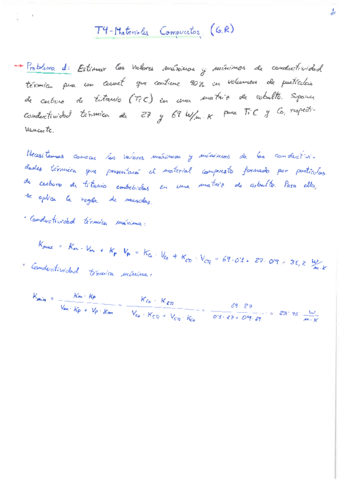 T4-Materiales Compuestos (G.R)
→ Problema 1: Estimar los valores máximos y mínimos de conductividad
térmica para un cermet que contiene 90% en volumen de partículas
de carburo de titanio (TiC) en una matriz de cobalto. Suponer
conductividad térmica de 27 y 69 W/m K para TiC y Co, respecti-
vamente.
Necesitamos conocer los valores máximos y mínimos de las conductivi-
dades térmicas que presentará el material compuesto formado por partículas
de carburo de titanio embebidas en una matriz de cobalto. Para ello,
se aplica la regla de mezclas.
· Conductividad térmica máxima:
Kmax = Km · Vm + Kp · Vp = KCo · VCo + KCTi · VCTi = 69·0'1 + 27·0'9 = 31,2 W/m·K
· Conductividad térmica mínima:
Kmin = Km · Kp / Vm · Kp + Vp · Km = KCo · KCTi / VCo · KCTi + VCTi · KCo = 69·27 / 0'1·27 + 0'9·69 = W/m·K